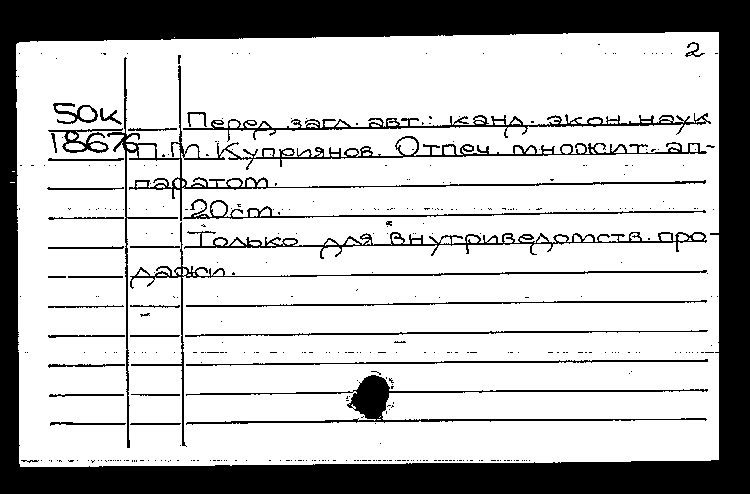 2
50к
18676
Перед загл. авт.: канд. экон. наук
П.М. Куприянов. Отпеч. множит. ап-
паратом.
20ст.
Только для внутриведомств. про-
дажи.